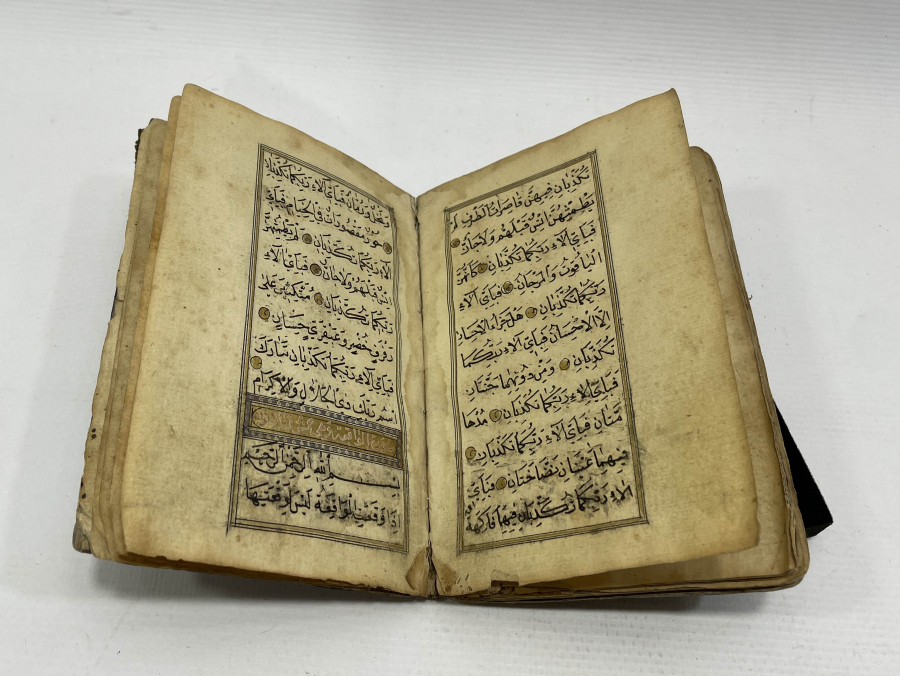 تُكَذِّبَانِ فِيهِنَّ قَاصِرَاتُ الطَّرْفِ لَمْ
يَطْمِثْهُنَّ اِنْسٌ قَبْلَهُمْ وَلَاجَانٌّ
فَبِاَيِّ آلَاءِ رَبِّكُمَا تُكَذِّبَانِ كَاَنَّهُنَّ
الْيَاقُوتُ وَالْمَرْجَانُ فَبِاَيِّ آلَاءِ
رَبِّكُمَا تُكَذِّبَانِ هَلْ جَزَاءُ الْاِحْسَانِ
اِلَّا الْاِحْسَانُ فَبِاَيِّ آلَاءِ رَبِّكُمَا
تُكَذِّبَانِ وَمِنْ دُونِهِمَا جَنَّتَانِ
فَبِاَيِّ آلَاءِ رَبِّكُمَا تُكَذِّبَانِ مُدْهَا
مَّتَانِ فَبِاَيِّ آلَاءِ رَبِّكُمَا تُكَذِّبَانِ
فِيهِمَا عَيْنَانِ نَضَّاخَتَانِ فَبِاَيِّ
آلَاءِ رَبِّكُمَا تُكَذِّبَانِ فِيهِمَا فَاكِهَةٌ
وَنَخْلٌ وَرُمَّانٌ فَبِاَيِّ آلَاءِ رَبِّكُمَا تُكَذِّبَانِ
حُورٌ مَقْصُورَاتٌ فِي الْخِيَامِ فَبِاَيِّ
آلَاءِ رَبِّكُمَا تُكَذِّبَانِ لَمْ يَطْمِثْهُنَّ
اِنْسٌ قَبْلَهُمْ وَلَاجَانٌّ فَبِاَيِّ آلَاءِ
رَبِّكُمَا تُكَذِّبَانِ مُتَّكِئِينَ عَلَى
رَفْرَفٍ خُضْرٍ وَعَبْقَرِيٍّ حِسَانٍ
فَبِاَيِّ آلَاءِ رَبِّكُمَا تُكَذِّبَانِ تَبَارَكَ
اسْمُ رَبِّكَ ذِي الْجَلَالِ وَالْاِكْرَامِ
سورة الواقعة
بِسْمِ اللهِ الرَّحْمٰنِ الرَّحِيمِ
اِذَا وَقَعَتِ الْوَاقِعَةُ لَيْسَ لِوَقْعَتِهَا